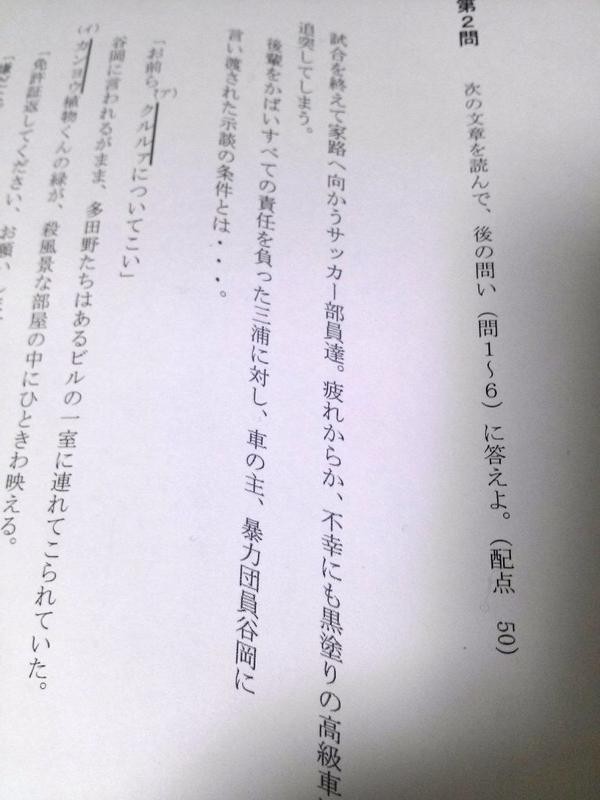 第2問
次の文章を読んで、後の問い(問1～6)に答えよ。(配点 50)
試合を終えて家路へ向かうサッカー部員達。疲れからか、不幸にも黒塗りの高級車
追突してしまう。
後輩をかばいすべての責任を負った三浦に対し、車の主、暴力団員谷岡に
言い渡された示談の条件とは・・・。
「お前ら、(ア)クルルァについてこい」
谷岡に言われるがまま、多田野たちはあるビルの一室に連れてこられていた。
(イ)カンヨウ植物くんの緑が、殺風景な部屋の中にひときわ映える。
「免許証返してください、お願いします